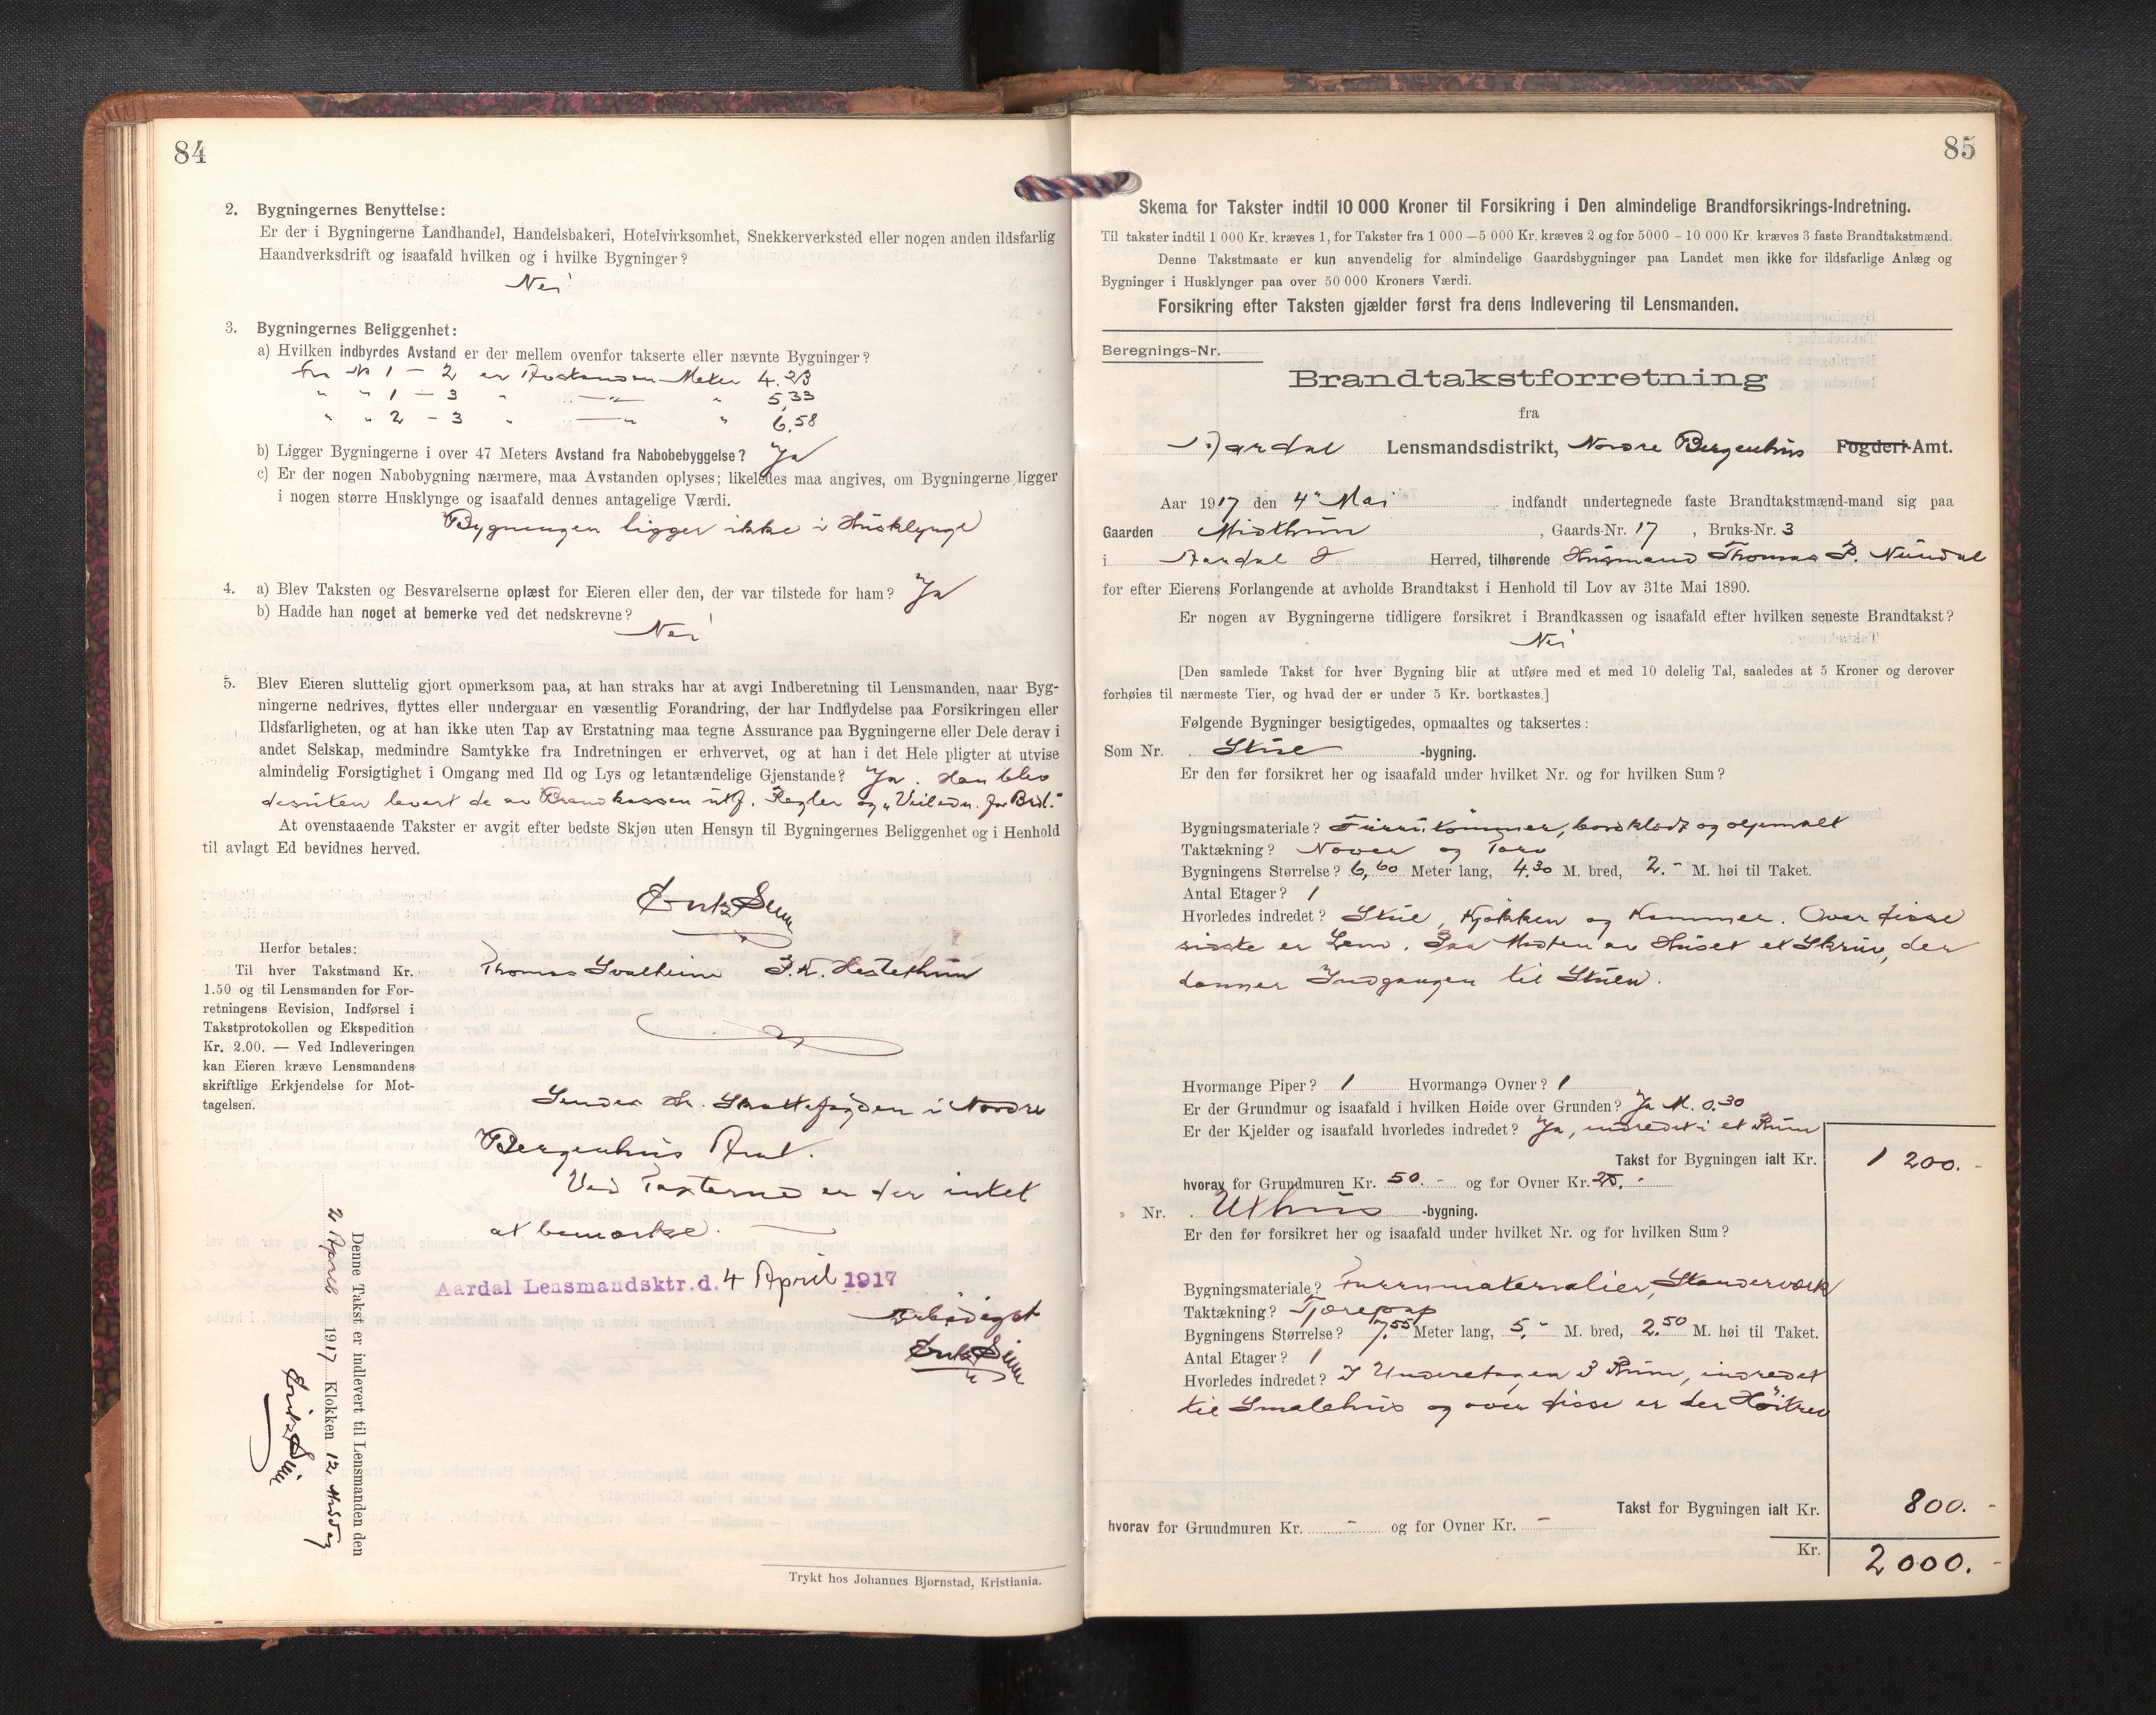 84
2. Bygningernes Benyttelse:
Er der i Bygningerne Landhandel, Handelsbakeri, Hotelvirksomhet, Snekkerverksted eller nogen anden ildsfarlig
Haandverksdrift og isaafald hvilken og i hvilke Bygninger?
Nei
3. Bygningernes Beliggenhet:
a) Hvilken indbyrdes Avstand er der mellem ovenfor takserte eller nævnte Bygninger?
fra No 1 – 2 er Avstanden Meter 4.23
" " 1 – 3 " —"— " 5,33
" " 2 – 3 " —"— " 6,58
b) Ligger Bygningerne i over 47 Meters Avstand fra Nabobebyggelse? Ja
c) Er der nogen Nabobygning nærmere, maa Avstanden oplyses; likeledes maa angives, om Bygningerne ligger
i nogen større Husklynge og isaafald dennes antagelige Værdi.
Bygningen ligger ikke i Husklynge
4. a) Blev Taksten og Besvarelserne oplæst for Eieren eller den, der var tilstede for ham? Ja
b) Hadde han noget at bemerke ved det nedskrevne?
Nei
5. Blev Eieren sluttelig gjort opmerksom paa, at han straks har at avgi Indberetning til Lensmanden, naar Byg-
ningerne nedrives, flyttes eller undergaar en væsentlig Forandring, der har Indflydelse paa Forsikringen eller
Ildsfarligheten, og at han ikke uten Tap av Erstatning maa tegne Assurance paa Bygningerne eller Dele derav i
andet Selskap, medmindre Samtykke fra Indretningen er erhvervet, og at han i det Hele pligter at utvise
almindelig Forsigtighet i Omgang med Ild og Lys og letantændelige Gjenstande? Ja. Han blev
desuten levert de av Brandkassen utf. Regler og "Veiledn. for Brdl."
At ovenstaaende Takster er avgit efter bedste Skjøn uten Hensyn til Bygningernes Beliggenhet og i Henhold
til avlagt Ed bevidnes herved.
Thomas Svalheim
Herfor betales:
Til hver Takstmand Kr.
1.50 og til Lensmanden for For-
retningens Revision, Indførsel i
Takstprotokollen og Ekspedition
Kr. 2.00. — Ved Indleveringen
kan Eieren kræve Lensmandens
skriftlige Erkjendelse for Mot-
tagelsen.
Sendes Hr. Skattefogden i Nordre
Bergenhus Amt.
Ved Taxterne er der intet
at bemærke.
Aardal Lensmandsktr.d. 4 April 1917
Ærbødigst
Denne Takst er indlevert til Lensmanden den
2 April 1917 Klokken 12 Middag
Trykt hos Johannes Bjørnstad, Kristiania.
85
Skema for Takster indtil 10 000 Kroner til Forsikring i Den almindelige Brandforsikrings-Indretning.
Til takster indtil 1 000 Kr. kræves 1, for Takster fra 1 000 – 5 000 Kr. kræves 2 og for 5000 – 10 000 Kr. kræves 3 faste Brandtakstmænd.
Denne Takstmaate er kun anvendelig for almindelige Gaardsbygninger paa Landet men ikke for ildsfarlige Anlæg og
Bygninger i Husklynger paa over 50 000 Kroners Værdi.
Forsikring efter Taksten gjælder først fra dens Indlevering til Lensmanden.
Beregnings-Nr.
Brandtakstforretning
fra
Aardal Lensmandsdistrikt, Nordre Bergenhus Fogderi-Amt.
Aar 1917 den 4' Mai indfandt undertegnede faste Brandtakstmænd-mand sig paa
Gaarden Midthun, Gaards-Nr. 17, Bruks-Nr. 3
i Aardal Herred, tilhørende Husmand Thomas P. Nundal
for efter Eierens Forlangende at avholde Brandtakst i Henhold til Lov av 31te Mai 1890.
Er nogen av Bygningerne tidligere forsikret i Brandkassen og isaafald efter hvilken seneste Brandtakst?
Nei
[Den samlede Takst for hver Bygning blir at utføre med et med 10 delelig Tal, saaledes at 5 Kroner og derover
forhøies til nærmeste Tier, og hvad der er under 5 Kr. bortkastes.]
Følgende Bygninger besigtigedes, opmaaltes og taksertes:
Som Nr. Stue -bygning.
Er den før forsikret her og isaafald under hvilket Nr. og for hvilken Sum?
Bygningsmateriale? Furutømmer, bordklædt og oljemalt
Taktækning? Never og Torv
Bygningens Størrelse? 6,60 Meter lang, 4.30 M. bred, 2.- M. høi til Taket.
Antal Etager? 1
Hvorledes indredet? Stue, Kjøkken og Kammer. Over disse
sidste er Lem. Paa Midten av Huset et Skruv, der
danner Indgangen til Stuen.
Hvormange Piper? 1 Hvormange Ovner? 1
Er der Grundmur og isaafald i hvilken Høide over Grunden? Ja M. 0.30
Er der Kjelder og isaafald hvorledes indredet? Ja, indredet i et Rum
Takst for Bygningen ialt Kr. 1 200.-
hvorav for Grundmuren Kr. 50.- og for Ovner Kr. 25.-
" Nr. Uthus -bygning.
Er den før forsikret her og isaafald under hvilket Nr. og for hvilken Sum?
Bygningsmateriale? Furumaterialier, Standerværk
Taktækning? Tjærepap
Bygningens Størrelse? 7,55 Meter lang, 5,- M. bred, 2.50 M. høi til Taket.
Antal Etager? 1
Hvorledes indredet? I Underetagen 3 Rum, indredet
til Smalehus og over disse er der Høitrev
Takst for Bygningen ialt Kr. 800.-
hvorav for Grundmuren Kr. - og for Ovner Kr. -
Kr. 2 000.-